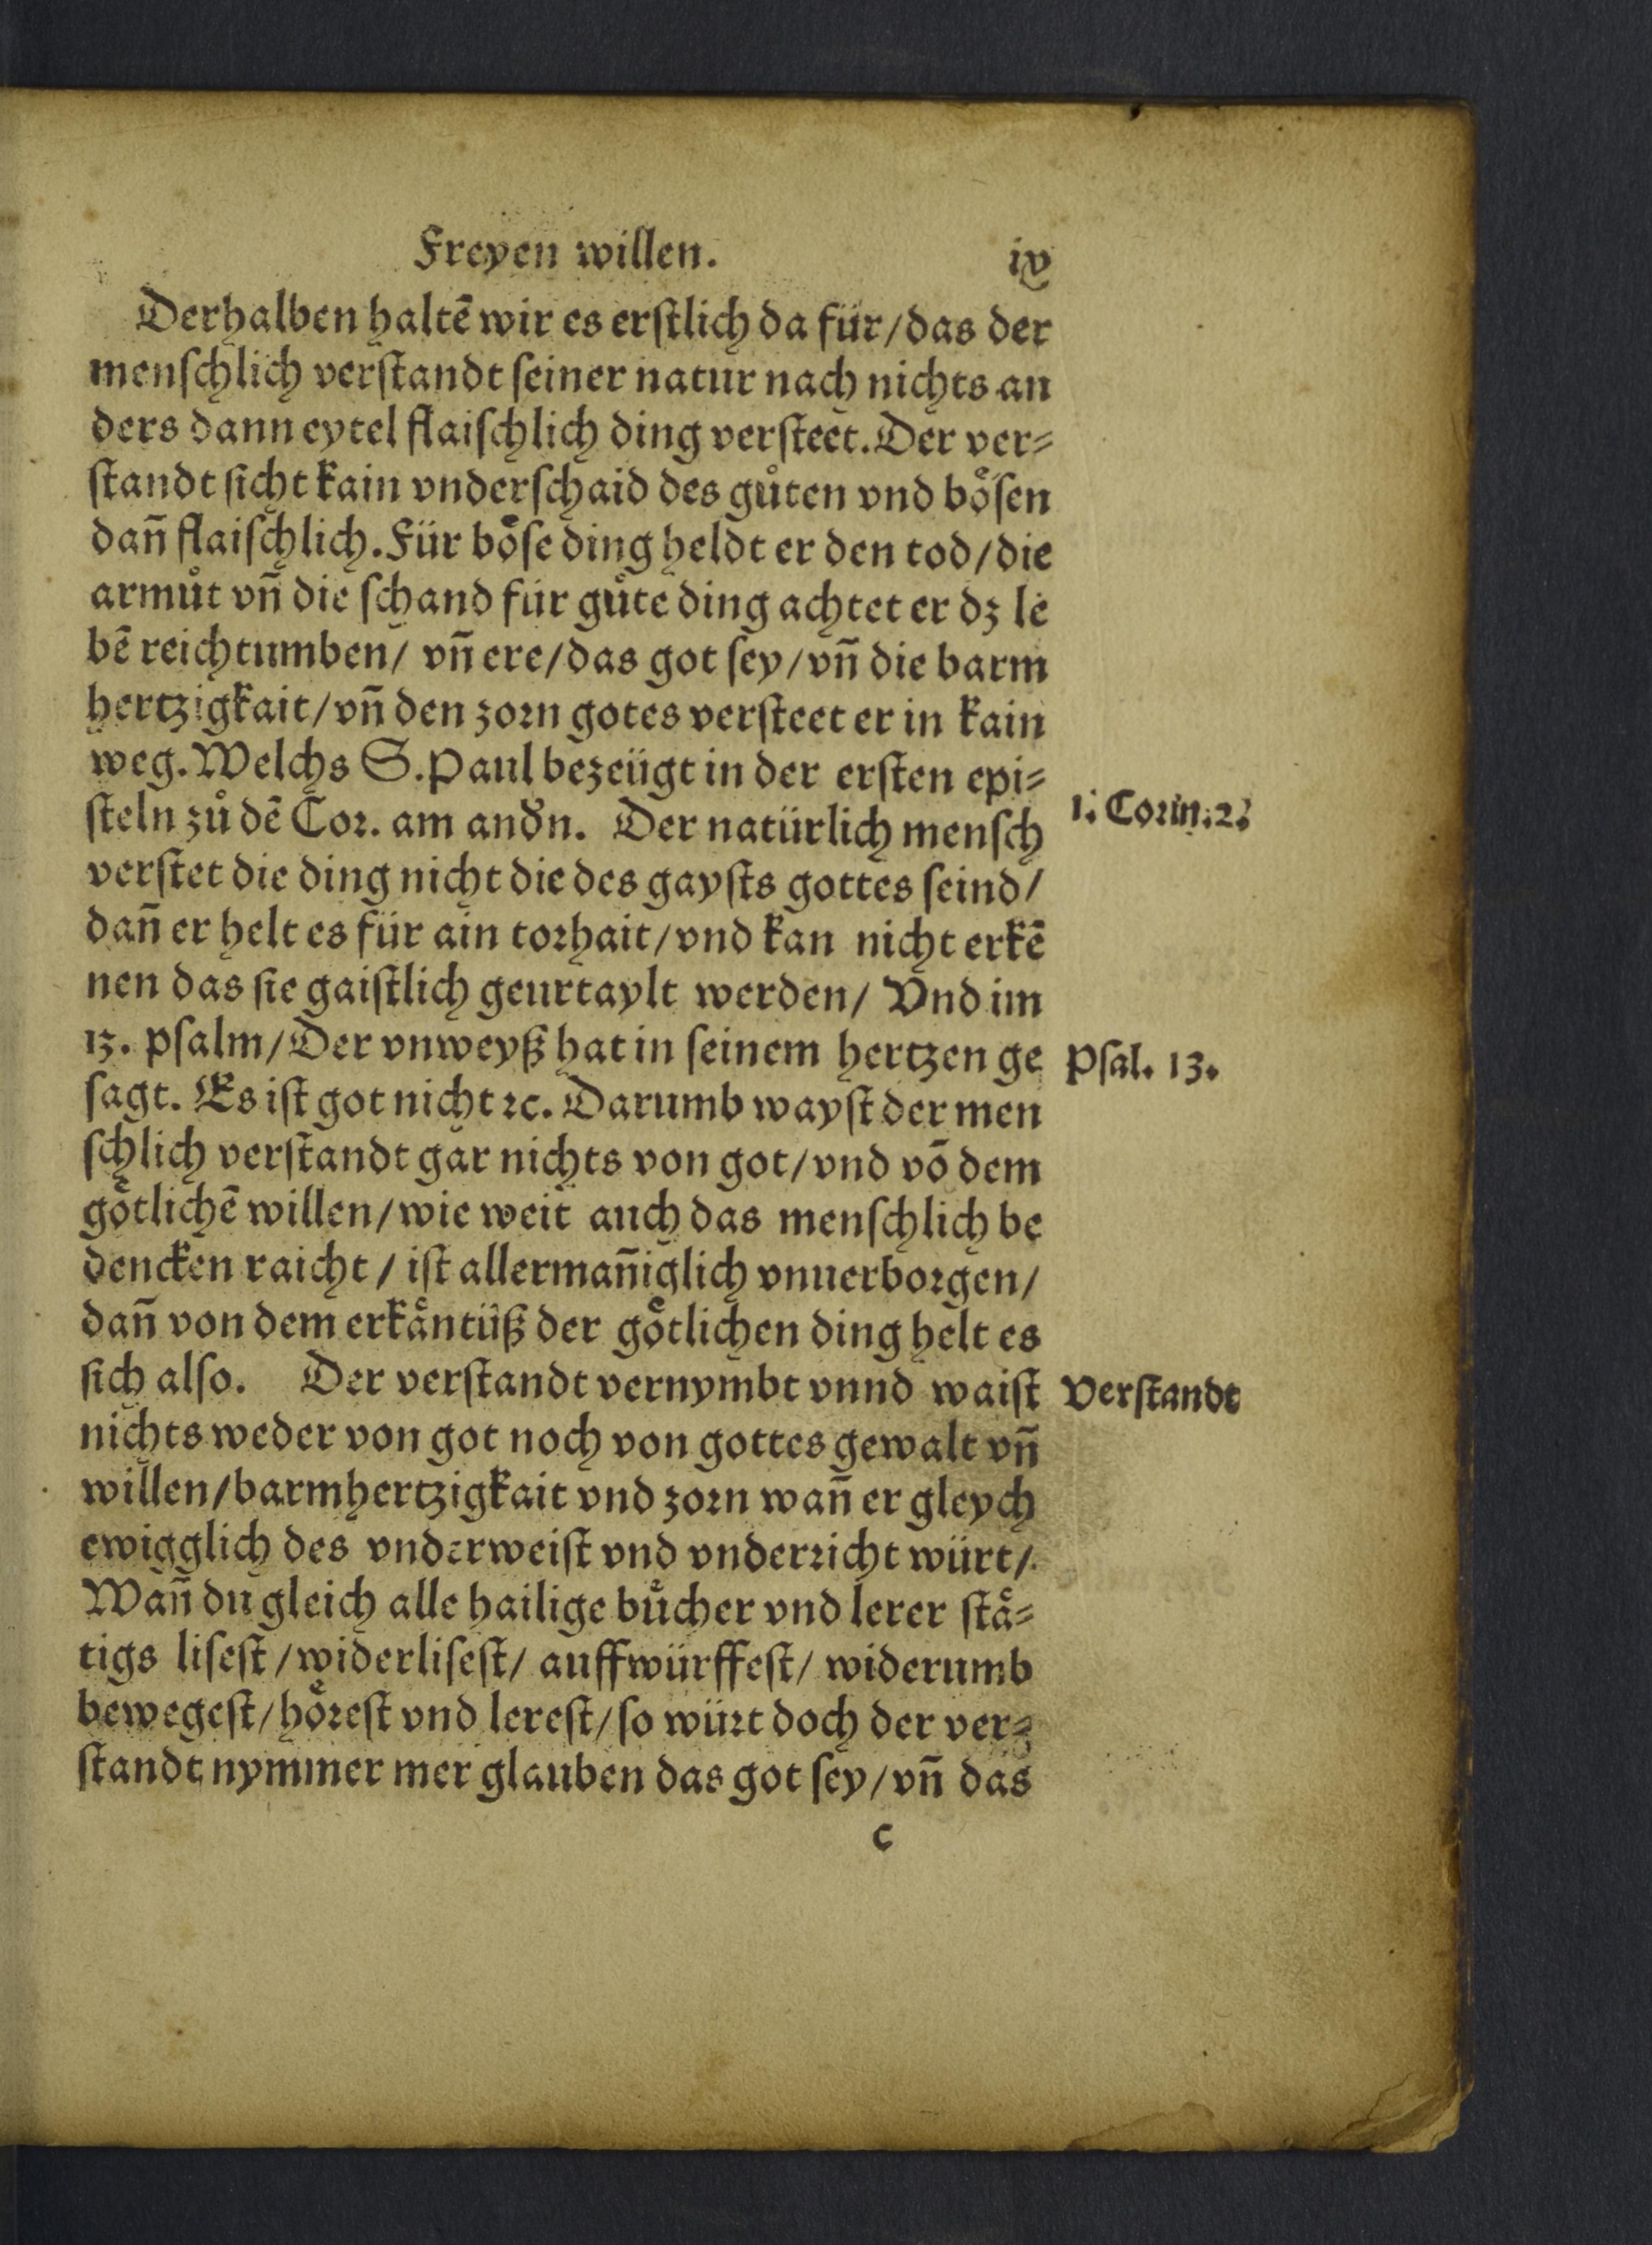 Freyen willen. ix
Derhalben haltē wir es erſtlich da für/das der
menſchlich verſtandt ſeiner natur nach nichts an
ders dann eytel flaiſchlich ding verſteet. Der ver⸗
ſtandt ſicht kain vnderſchaid des gůten vnd boͤſen
dan̄ flaiſchlich. Für boͤſe ding heldt er den tod/die
armůt vn̄ die ſchand für gůte ding achtet er dz le
bē reichtumben/ vn̄ ere/das got ſey/vn̄ die barm
hertzigkait/vn̄ den zoꝛn gotes verſteet er in kain
weg. Welchs S. Paul bezeügt in der erſten epi⸗
ſteln zů dē Coꝛ. am and̄n. Der natürlich menſch
1. Coꝛin. 2.
verſtet die ding nicht die des gayſts gottes ſeind/
dan̄ er helt es für ain toꝛhait/vnd kan nicht erkē
nen das ſie gaiſtlich geurtaylt werden/ Vnd im
13. pſalm/Der vnweyß hat in ſeinem hertzen ge
Pſal. 13.
ſagt. Es iſt got nicht ꝛc. Darumb wayſt der men
ſchlich verſtandt gar nichts von got/vnd vō dem
goͤtlichē willen/wie weit auch das menſchlich be
dencken raicht/ iſt allerman̄iglich vnuerboꝛgen/
dan̄ von dem erkaͤntüß der goͤtlichen ding helt es
ſich alſo. Der verſtandt vernymbt vnnd waiſt
Verſtandt
nichts weder von got noch von gottes gewalt vn̄
willen/barmhertzigkait vnd zoꝛn wan̄ er gleych
ewigglich des vnderweiſt vnd vnderꝛicht würt/
Wan̄ du gleich alle hailige buͤcher vnd lerer ſtaͤ⸗
tigs liſeſt/widerliſeſt/ auffwürffeſt/ widerumb
bewegeſt/hoͤꝛeſt vnd lereſt/ſo würt doch der ver⸗
ſtandt nymmer mer glauben das got ſey/vn̄ das
c